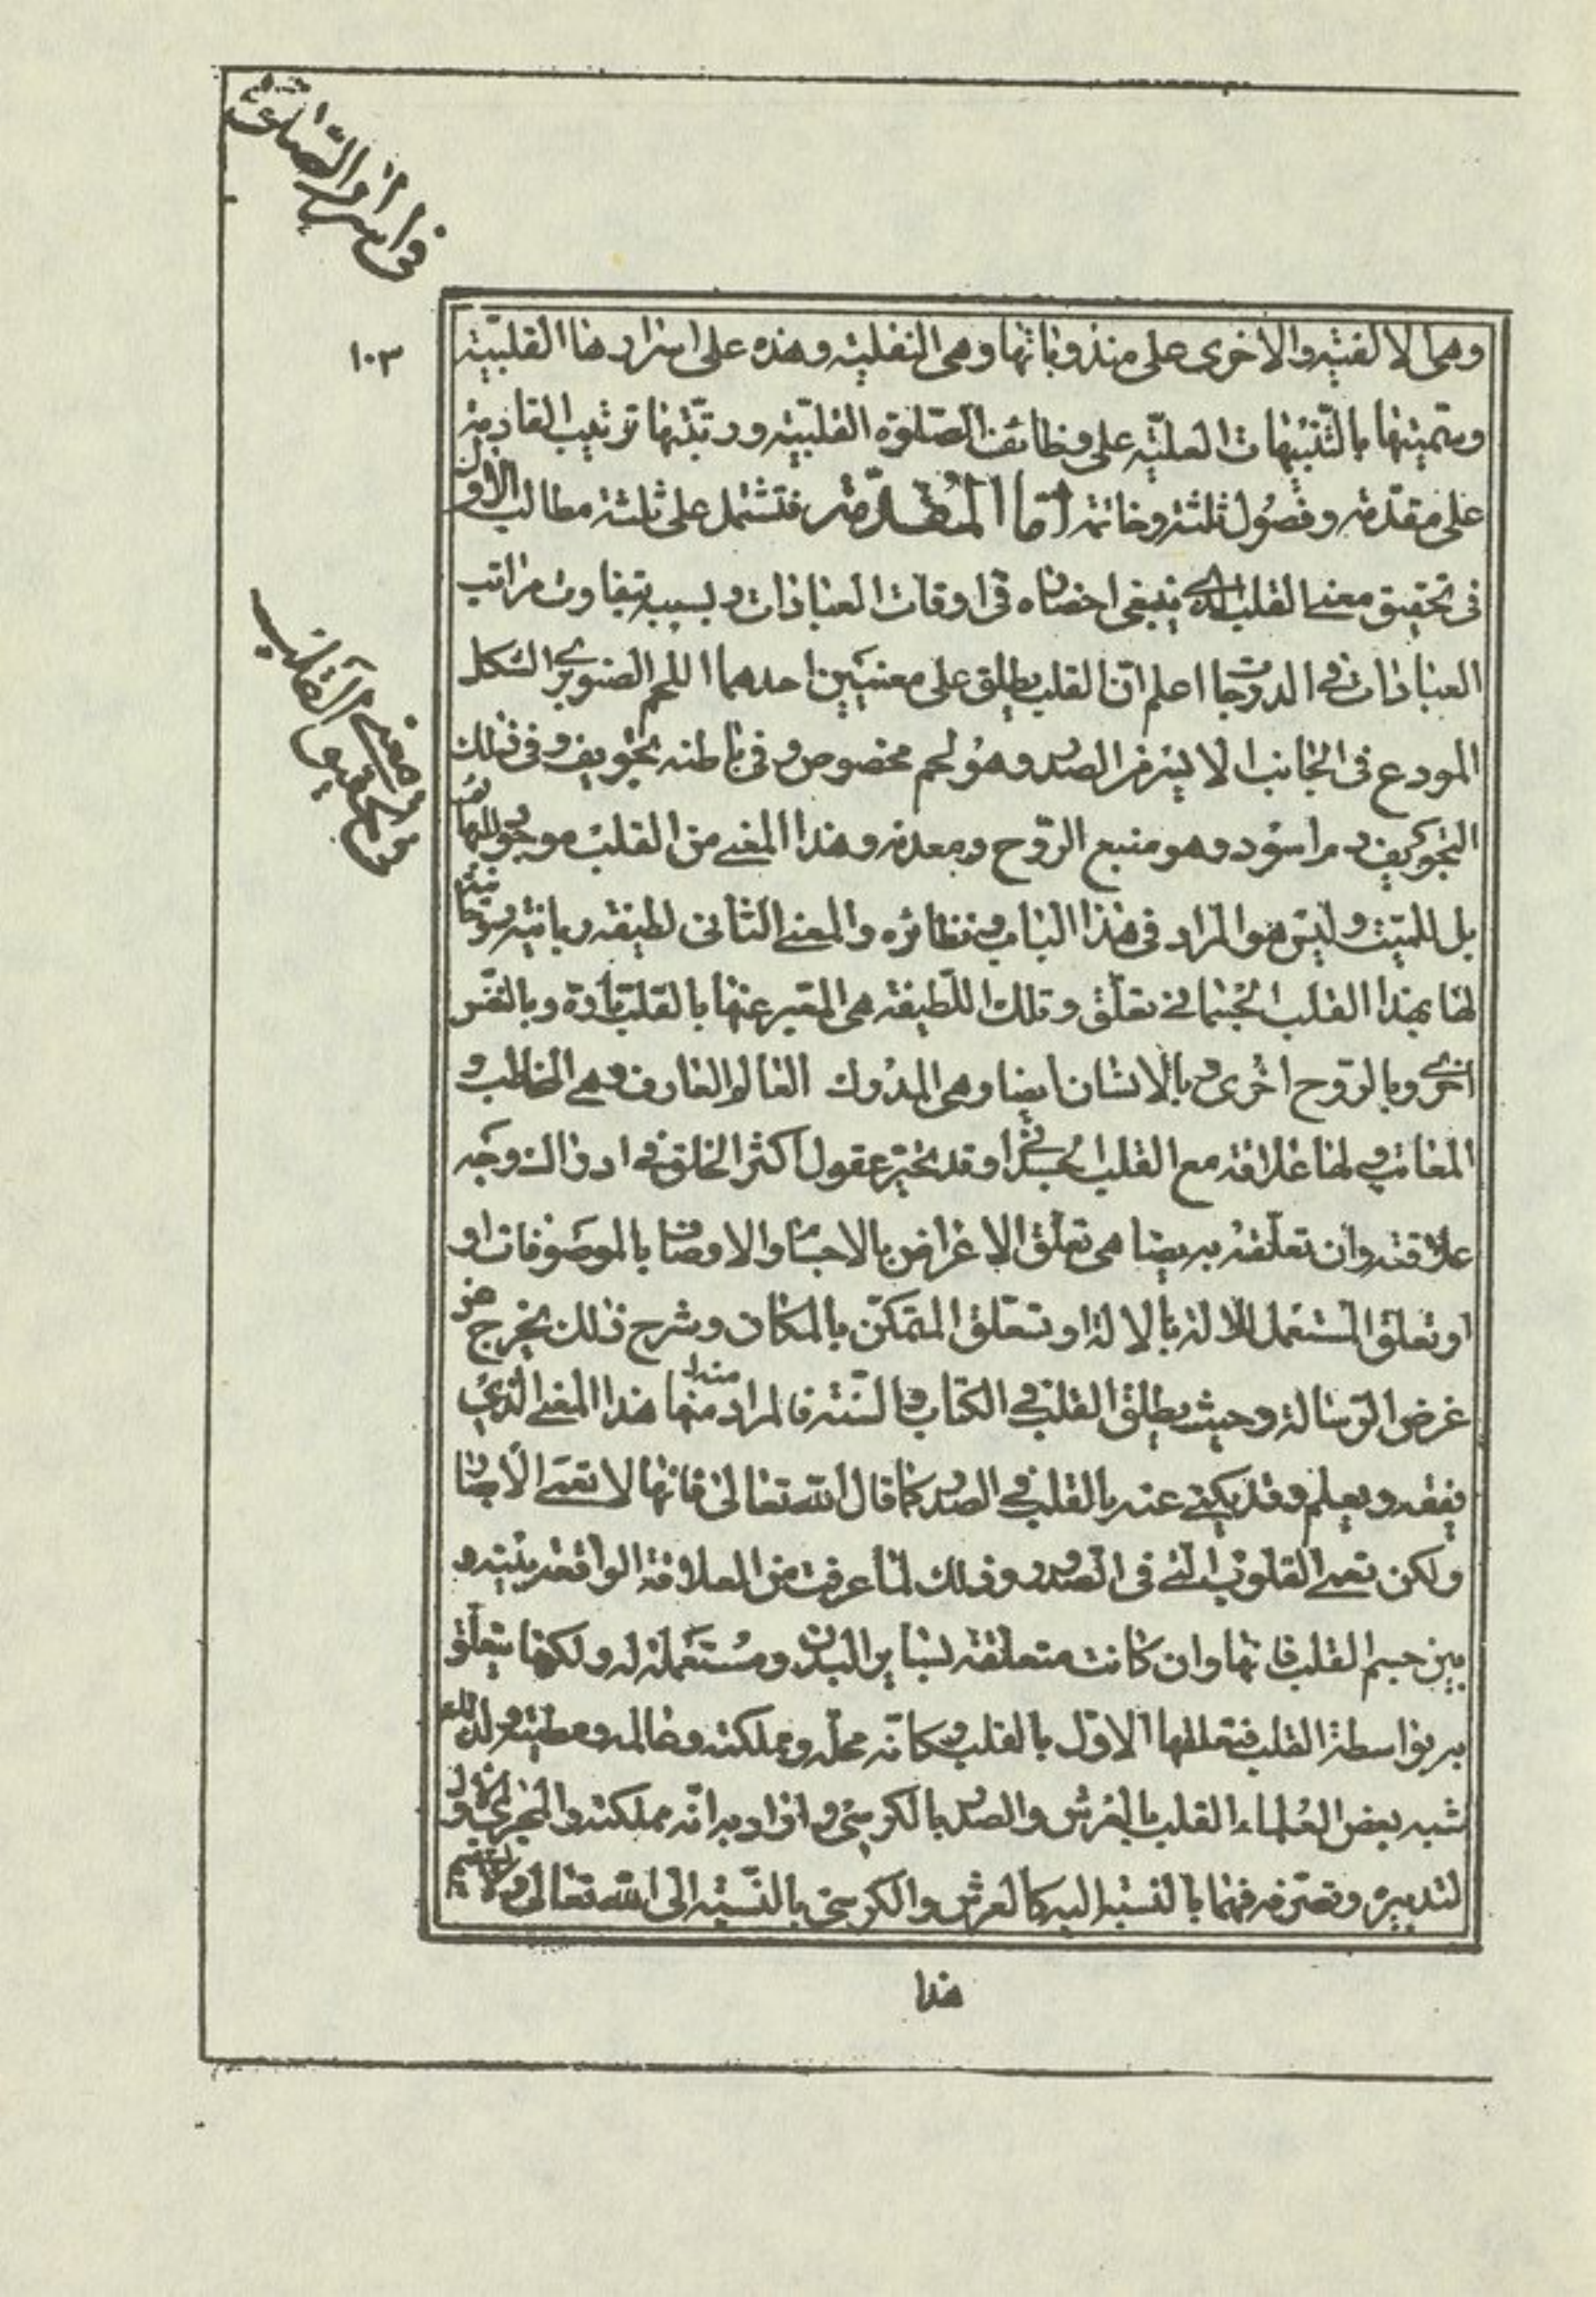 في اسرار الصلوة
١٠٣
وهى الالفية والاخرى على مندوباتها وهى النفلية وهذه على اسرارها القلبية
وسميتها بالتنبيهات العلية على وظائف الصلوة القلبية ورتبتها ترتيب القادمة
على مقدمة وفصول ثلثة وخاتمة اما المقدمة فتشتمل على ثلثة مطالب الاول
فى تحقيق معنى القلب الذى ينبغى احضاره فى اوقات العبادات وبسببه يتفاوت مراتب
العبادات فى الدرجات اعلم ان القلب يطلق على معنيين احدهما اللحم الصنوبرى الشكل
المودع فى الجانب الايسر من الصدر وهو لحم مخصوص وفى باطنه تجويف وفى ذلك
التجويف دم اسود وهو منبع الروح ومعدنه وهذا المعنى من القلب موجود للبهائم
بل للميت وليس هو المراد فى هذا الباب ونظائره والمعنى الثانى لطيفة ربانية روحانية
لها بهذا القلب الجسمانى تعلق وتلك اللطيفة هى المعبر عنها بالقلب تارة وبالنفس
اخرى وبالروح اخرى وبالانسان ايضا وهى المدرك العالم العارف وهى المخاطب و
المعاتب ولها علاقة مع القلب الجسدانى وقد تحير عقول اكثر الخلق فى ادراك وجه
علاقته وان تعلقه به يضاهى تعلق الاعراض بالاجسام والاوصاف بالموصوفات او
او تعلق المستعمل للالة بالالة او تعلق المتمكن بالمكان وشرح ذلك يخرج عن
غرض الرسالة وحيث يطلق القلب فى الكتاب والسنة فالمراد منها هذا المعنى الذى
يفقه ويعلم وقد يكنى عنه بالقلب فى الصدر كما قال الله تعالى فانها لا تعمى الابصار
ولكن تعمى القلوب التى فى الصدور وذلك لما عرفت من العلاقة الواقعة بينه و
بين جسم القلب فانها وان كانت متعلقة بسائر البدن ومستعملة له ولكنها يتعلق
به بواسطة القلب فتعلقها الاول بالقلب وكانه محله ومملكته وعالمه ومطيته ولذلك
شبه بعض العلماء القلب بالعرش والصدر بالكرسى واراد به انه مملكته والمجرى الاول
لتدبيره وتصرفه فهما بالنسبة اليه كالعرش والكرسى بالنسبة الى الله تعالى ولا يستقيم
من تحقيق معنى القلب
هذا